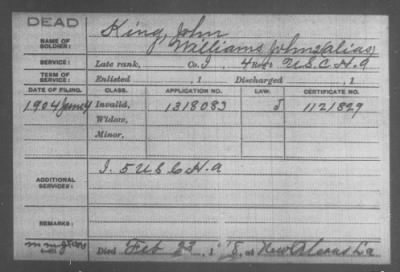 DEAD
King, John
NAME OF SOLDIER:
Williams John (alias)
SERVICE: Late rank, Co. I, 4 Reg't U.S.C.H.A
TERM OF SERVICE: Enlisted , 1 Discharged , 1
DATE OF FILING. CLASS. APPLICATION NO. LAW. CERTIFICATE NO.
1904 Invalid, 1318083 1121829
Widow,
Minor,
ADDITIONAL SERVICES:
I. 5 U S C H. A
REMARKS:
Died Feb 23, 1 at New Orleans La